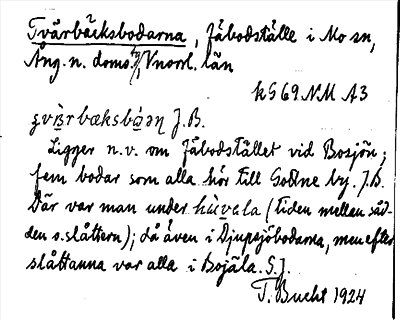 Tvärbäcksbodarna, Fäbodställe i Mo sn,
Ång. n. doms., Vnorrl. län
kG 69 NM A3
J.B.
Ligger n.v. om Fäbodstället vid Bosjön;
fem bodar som alla hör till Gottne by. J.B.
Där var man under (tiden mellan såd-
den o. slåttern); då även i Djupsjöbodarna, men efter
slåttanna var alla i Bojäla. S.J.
T. Bucht 1924